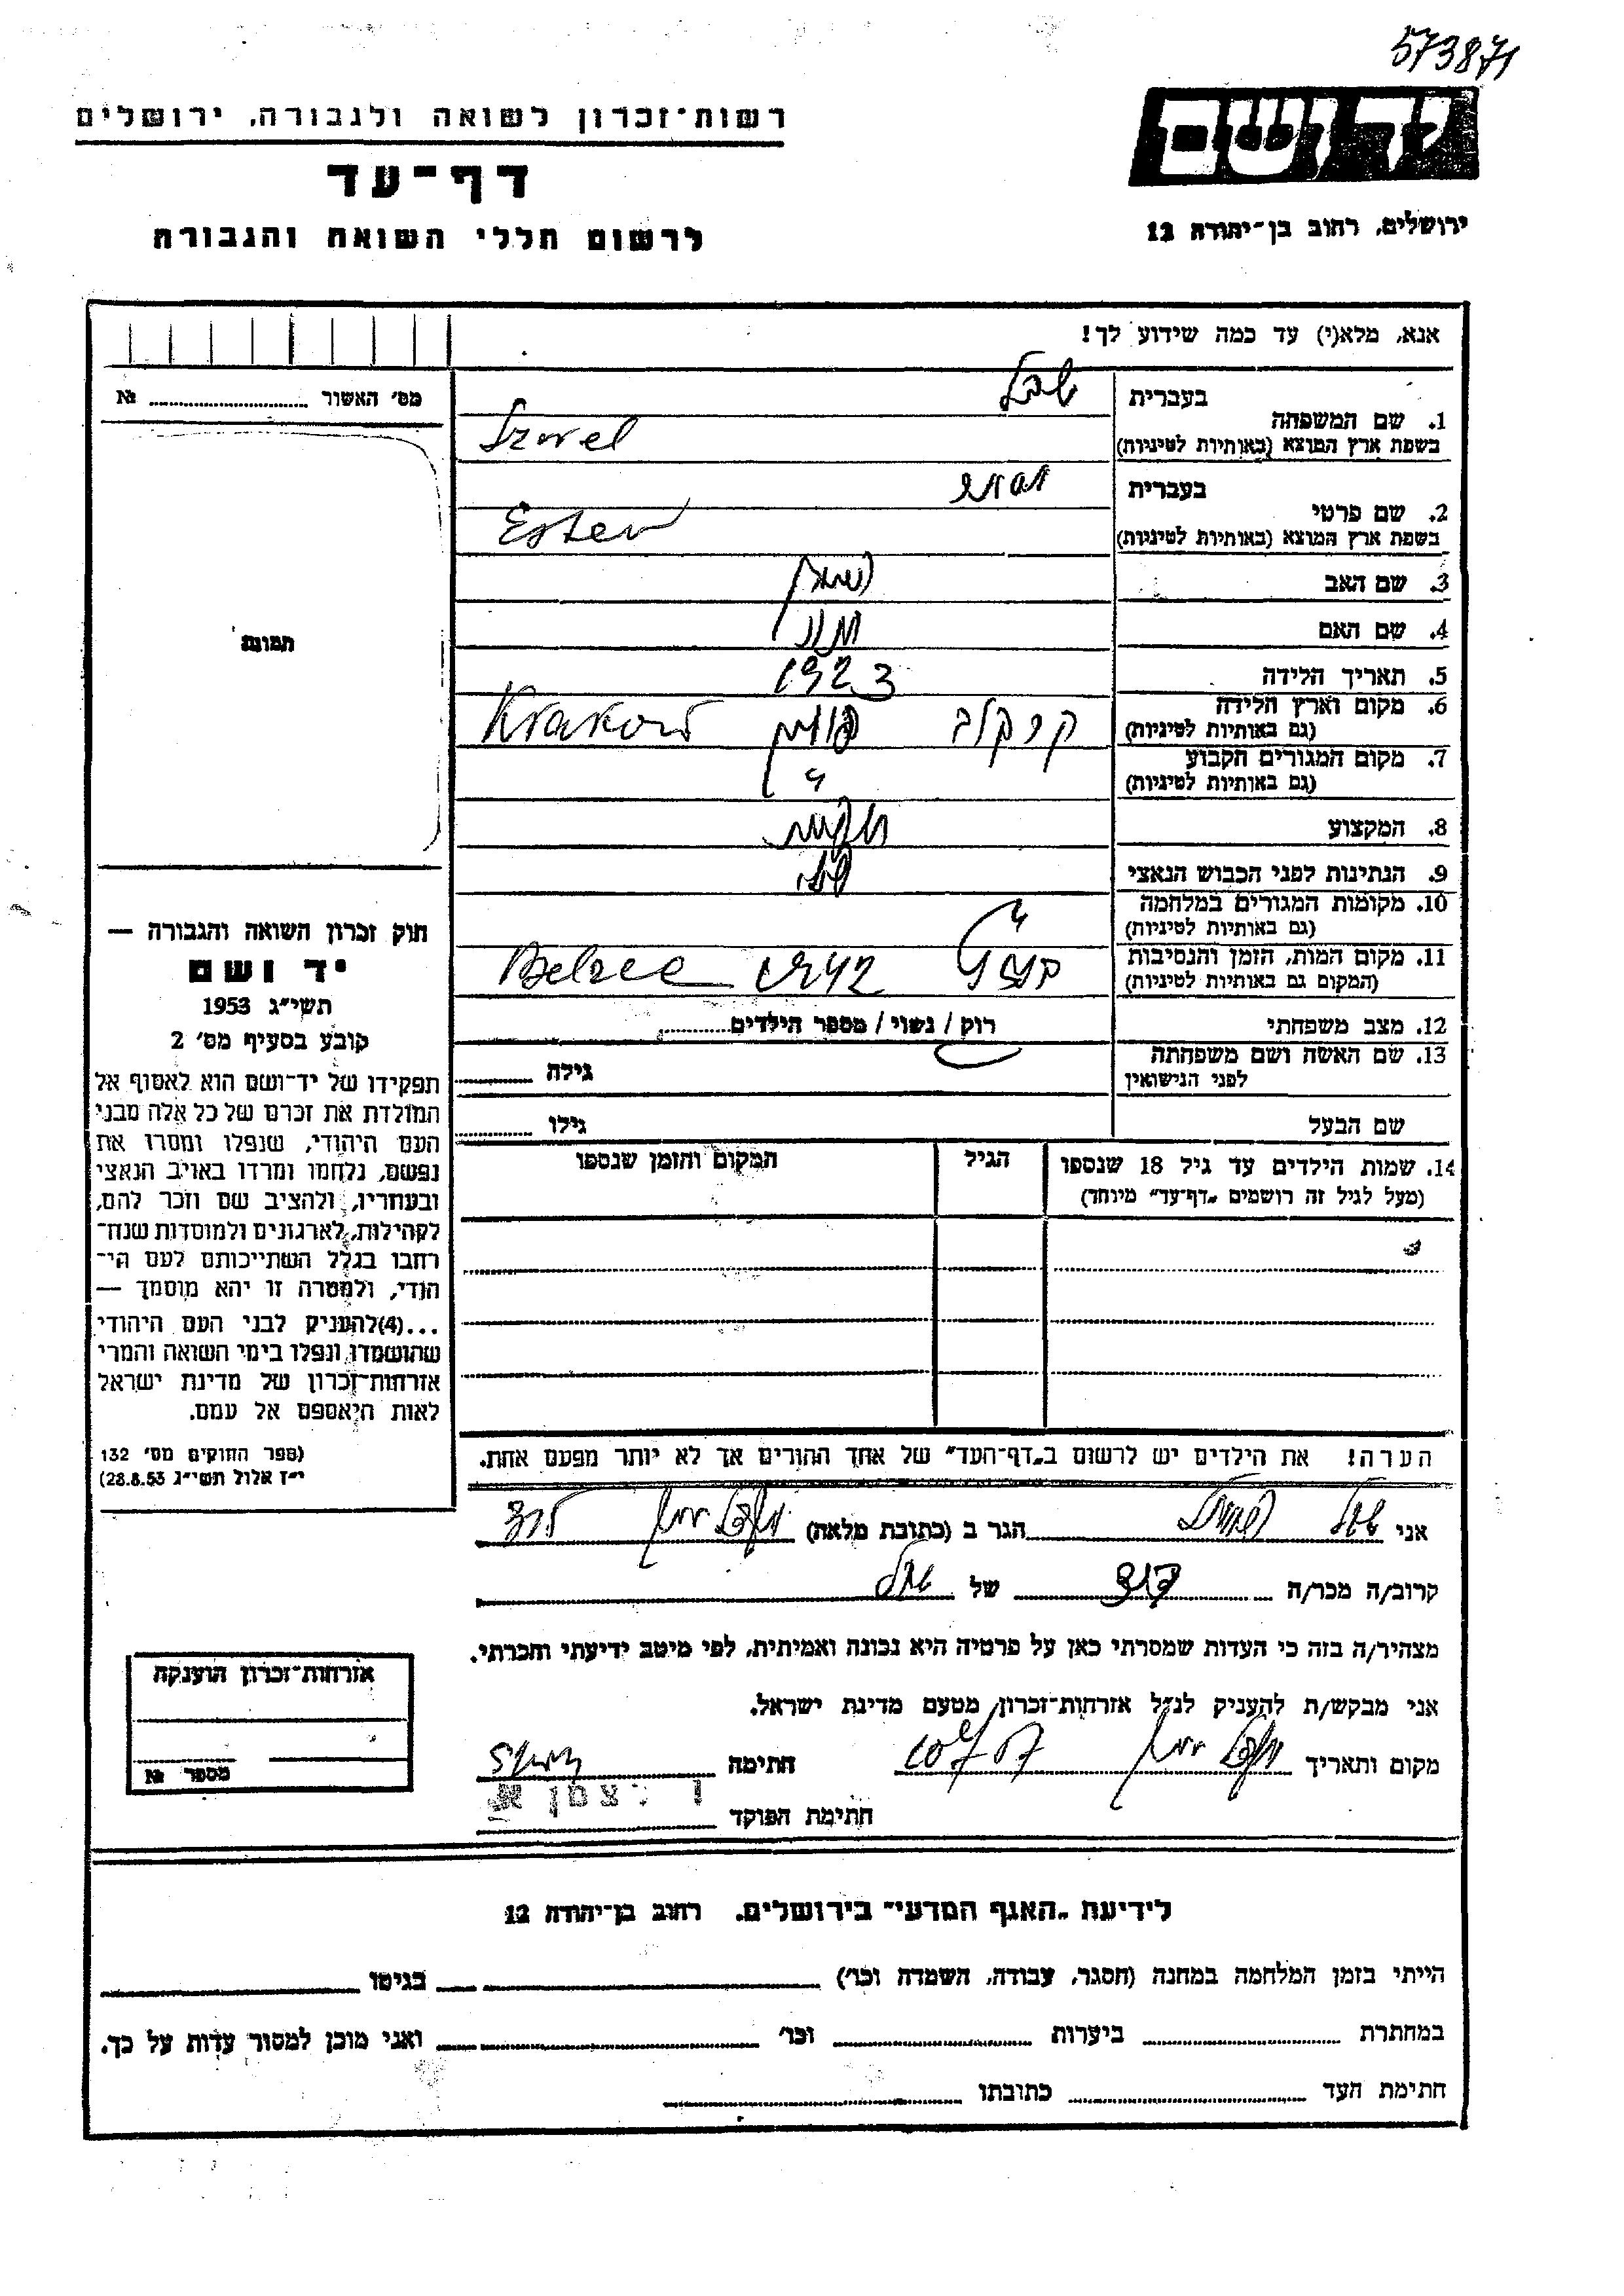 573871
יד ושם
רשות־זכרון לשואה ולגבורה, ירושלים
דף־עד
לרשום חללי השואה והגבורה
ירושלים, רחוב בן־יהודה 12
אנא, מלא(י) עד כמה שידוע לך!
מס׳ האשור №
תמונה
בעברית
1. שם המשפחה
בשפת ארץ המוצא (באותיות לטיניות)
Szowel
בעברית אסתר
2. שם פרטי
בשפת ארץ המוצא (באותיות לטיניות)
Ester
3. שם האב
4. שם האם
5. תאריך הלידה 1923
6. מקום וארץ הלידה קרקוב פולין Krakow
(גם באותיות לטיניות)
7. מקום המגורים הקבוע
(גם באותיות לטיניות)
8. המקצוע
9. הנתינות לפני הכבוש הנאצי
10. מקומות המגורים במלחמה
(גם באותיות לטיניות)
11. מקום המות, הזמן והנסיבות 1942 Belzec
(המקום גם באותיות לטיניות)
12. מצב משפחתי רוק / נשוי / מספר הילדים
13. שם האשה ושם משפחתה
לפני הנישואין
גילה
שם הבעל גילו
14. שמות הילדים עד גיל 18 שנספו
(מעל לגיל זה רושמים „דף־עד״ מיוחד)
הגיל
המקום והזמן שנספו
חוק זכרון השואה והגבורה —
יד ושם
תשי״ג 1953
קובע בסעיף מס׳ 2
תפקידו של יד־ושם הוא לאסוף אל
המולדת את זכרם של כל אלה מבני
העם היהודי, שנפלו ומסרו את
נפשם, נלחמו ומרדו באויב הנאצי
ובעוזריו, ולהציב שם וזכר להם,
לקהילות, לארגונים ולמוסדות שנח־
רחבו בגלל השתייכותם לעם הי־
הודי, ולמטרה זו יהא מוסמך —
...(4)להעניק לבני העם היהודי
שהושמדו ונפלו בימי השואה והמרי
אזרחות־זכרון של מדינת ישראל
לאות היאספם אל עמם.
(ספר החוקים מס׳ 132
י״ז אלול תשי״ג 28.8.53)
הערה! את הילדים יש לרשום ב„דף־העד״ של אחד ההורים אך לא יותר מפעם אחת.
אני הגר ב (כתובת מלאה)
קרוב/ה מכר/ה של
מצהיר/ה בזה כי העדות שמסרתי כאן על פרטיה היא נכונה ואמיתית, לפי מיטב ידיעתי והכרתי.
אני מבקש/ת להעניק לנ״ל אזרחות־זכרון מטעם מדינת ישראל.
מקום ותאריך חתימה
חתימת הפוקד
אזרחות־זכרון הוענקה
מספר №
לידיעת „האגף המדעי״ בירושלים. רחוב בן־יהודה 12
הייתי בזמן המלחמה במחנה (הסגר, עבודה, השמדה וכו׳) בגיטו
במחתרת ביערות וכו׳ ואני מוכן למסור עדות על כך.
חתימת העד כתובתו